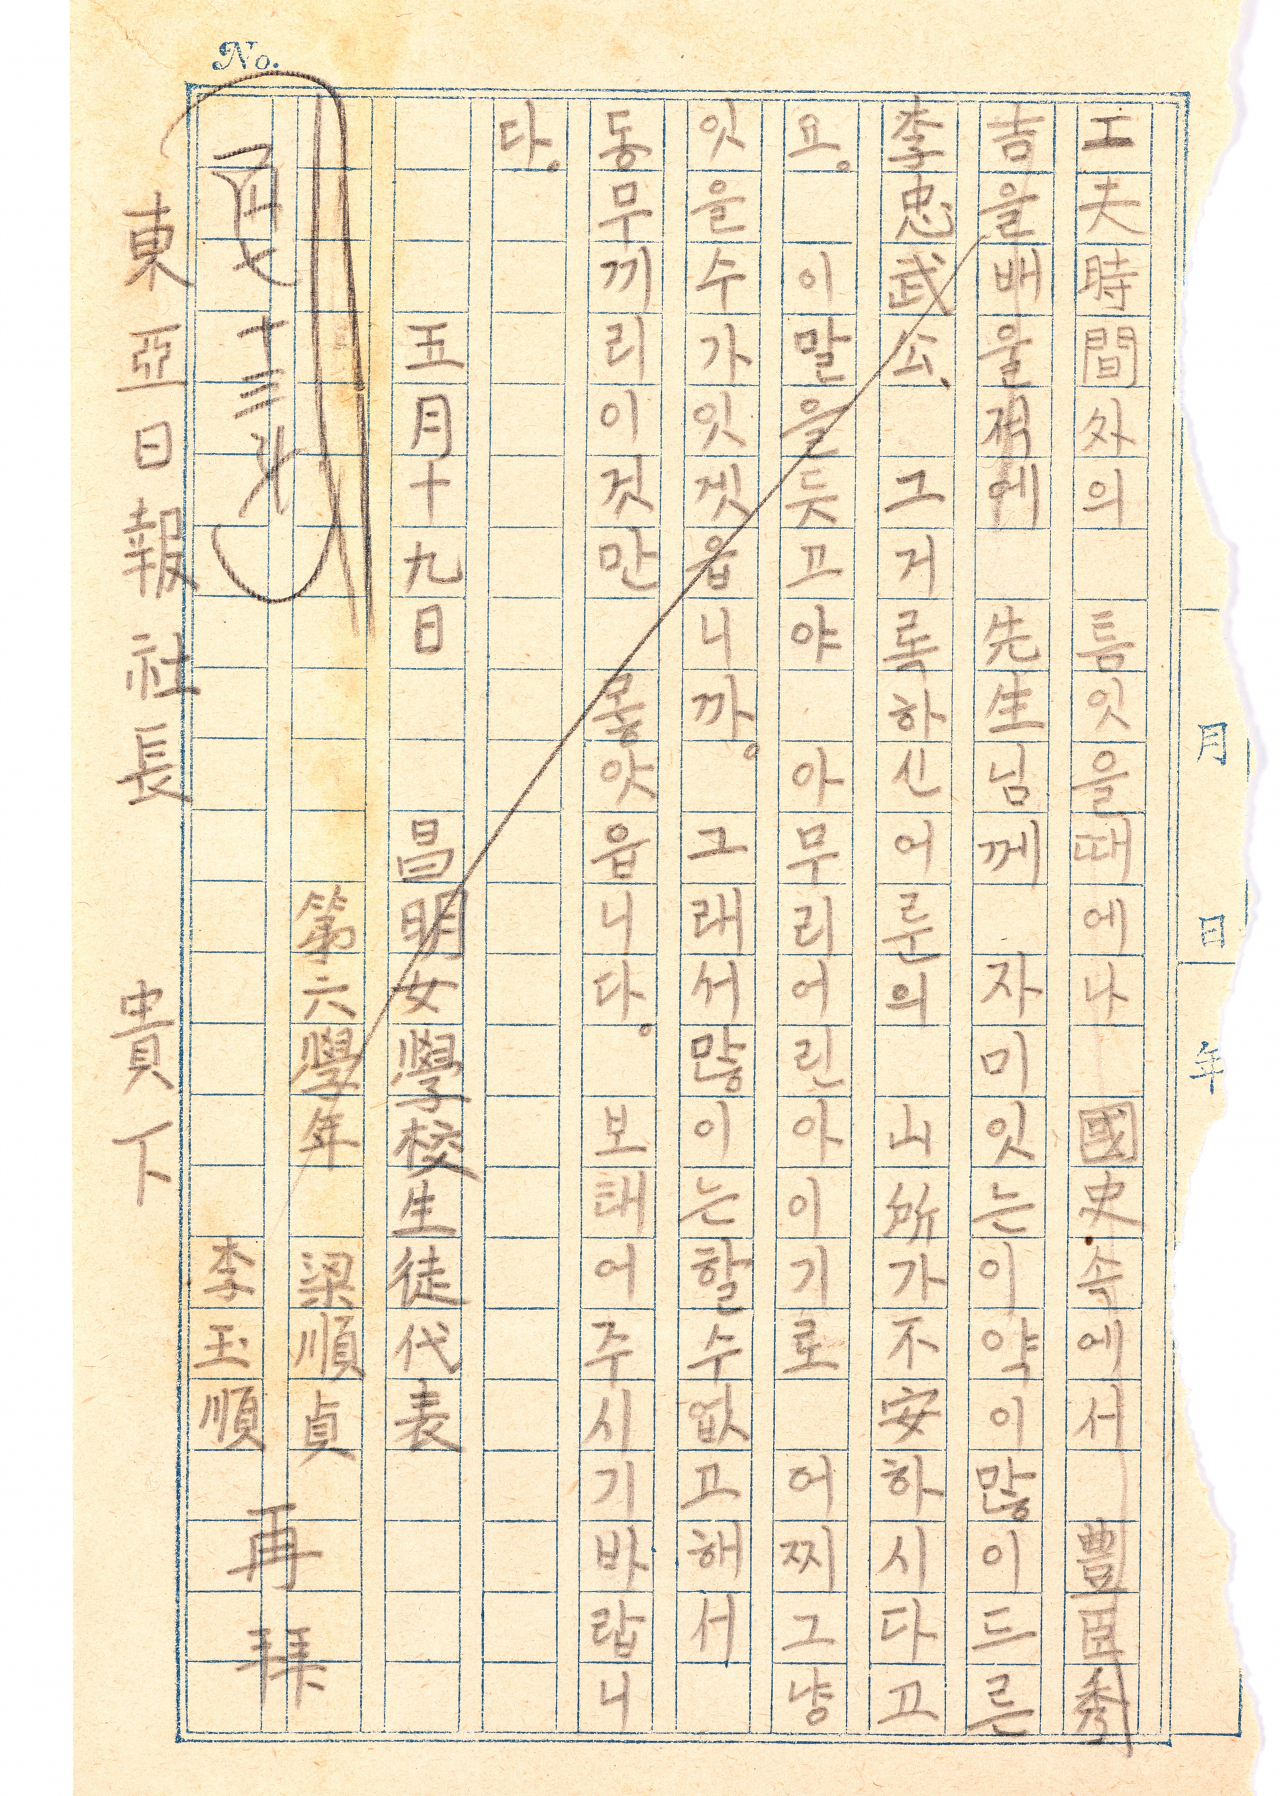 No.
月 日 年
工夫時間外의 틈잇을때에나 國史속에서 豊臣秀
吉을배울적에 先生님께 자미잇는이약이많이드른
李忠武公、 그거록하신어룬의 山所가不安하시다고
요。 이말을듯고야 아무리어린아이기로 어찌그냥
잇을수가잇겟읍니까。 그래서많이는할수없고해서
동무끼리이것만 몽앗읍니다。 보태어주시기바랍니
다。
五月十九日 昌明女學校生徒代表
第六學年 梁順貞
李玉順
再拜
東亞日報社長 貴下